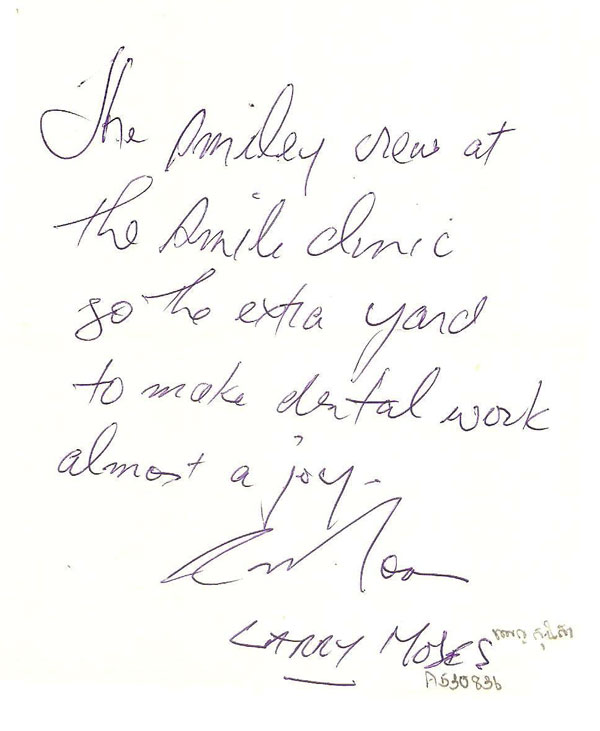 The smiley crew at
the smile clinic
go the extra yard
to make dental work
almost a joy.
LARRY MOSES
A530836